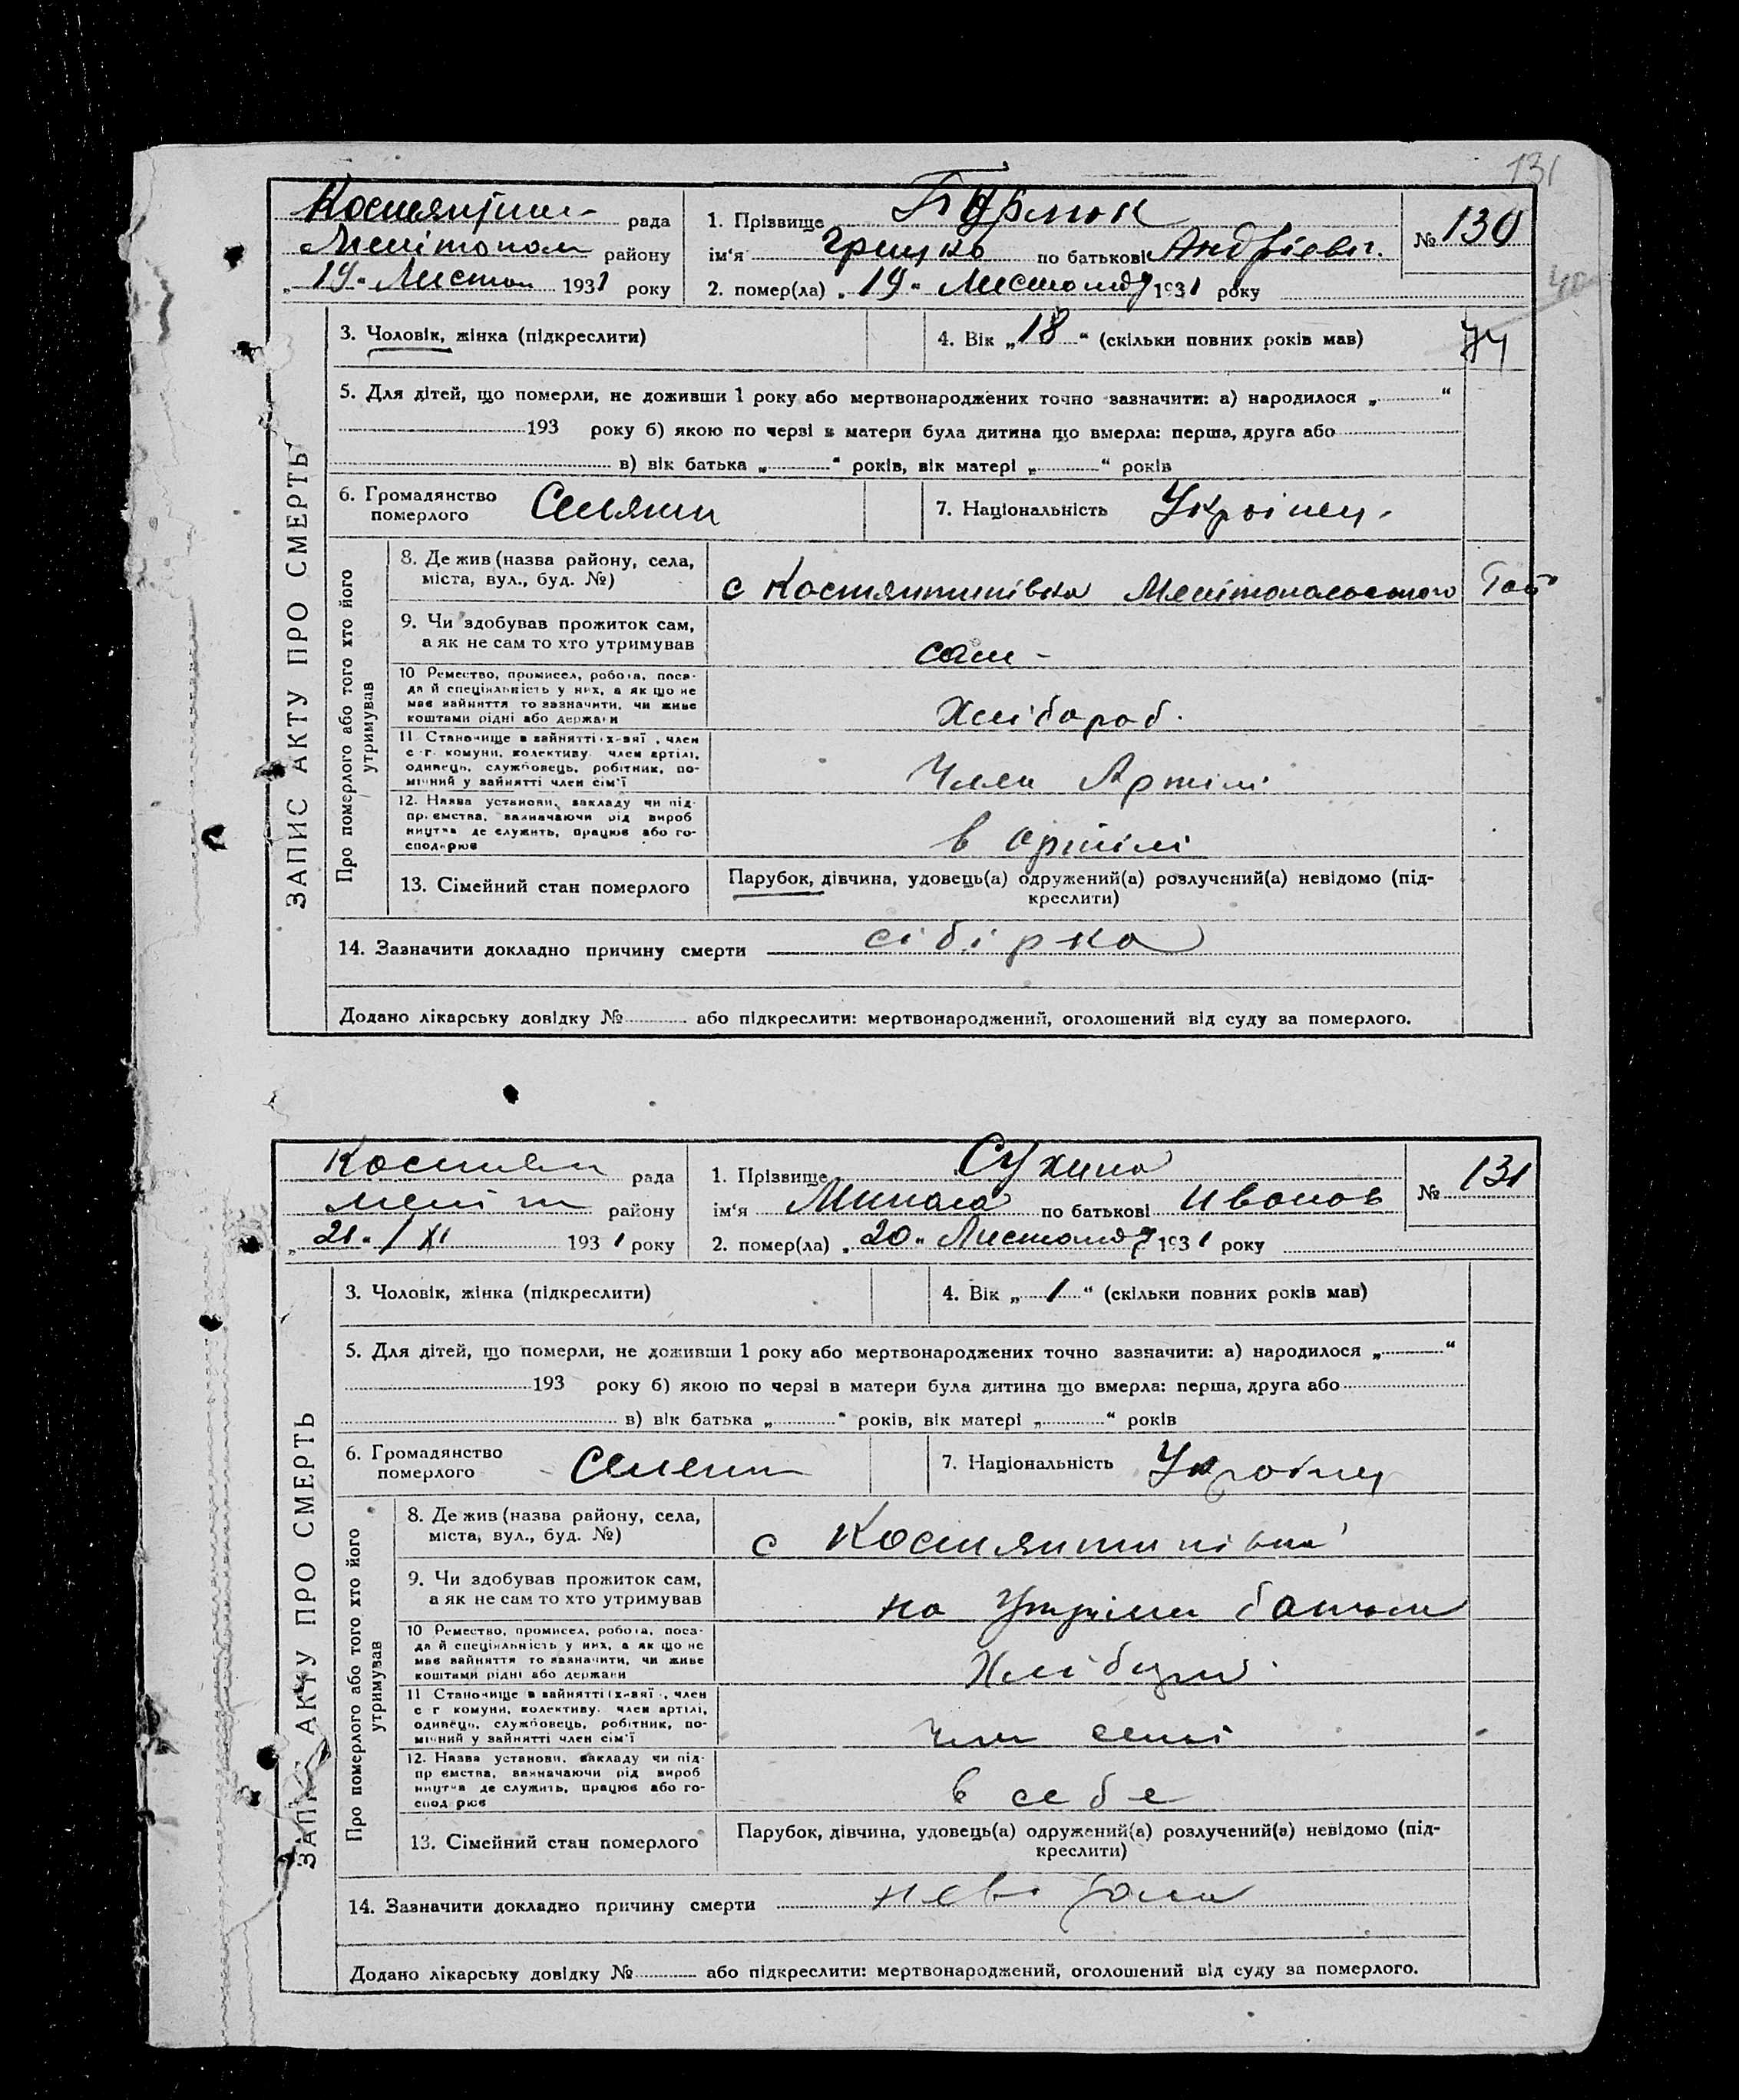 131
Костянтин- рада
Меліtопол району
„19„ Листоп 1931 року
1. Прізвище
ім'я Грицько по батькові Андрієвіч.
2. помер(ла) „19„ Листопаду 1931 року
№ 130
3. Чоловік, жінка (підкреслити)
4. Вік „18“ (скільки повних років мав)
5. Для дітей, що померли, не доживши 1 року або мертвонароджених точно зазначити: а) народилося „ “
193 року б) якою по черзі в матери була дитина що вмерла: перша, друга або
в) вік батька „ “ років, вік матері „ “ років
6. Громадянство
померлого
Селянин
7. Національність Українец.
ЗАПИС АКТУ ПРО СМЕРТЬ
Про померлого або того хто його
утримував
8. Де жив (назва району, села,
міста, вул., буд. №)
с Костянтинівка Мелітопольського
9. Чи здобував прожиток сам,
а як не сам то хто утримував
сам -
10 Ремество, промисел, робота, поса-
да й спеціяльність у них, а як що не
має зайняття то зазначити, чи живе
коштами рідні або держави
Хлібороб.
11 Становище в зайнятті х-вяї, член
с-г. комуни, колективу. член артілі,
одинець, службовець, робітник, по-
мічний у зайнятті член сім'ї
Член Артілі
12. Назва установи, закладу чи під-
пр.ємства, вазначаючи рід вироб
ництва де служить, працює або го-
сподарює
в артілі
13. Сімейний стан померлого
Парубок, дівчина, удовець(а) одружений(а) розлучений(а) невідомо (під-
креслити)
14. Зазначити докладно причину смерти сібірка
Додано лікарську довідку № або підкреслити: мертвонароджений, оголошений від суду за померлого.
Костян рада
Меліт району
„21„ / XI 1931 року
1. Прізвище Сухина
ім'я Микола по батькові Иванов
2. помер(ла) „20„ Листопаду 1931 року
№ 131
3. Чоловік, жінка (підкреслити)
4. Вік „1“ (скільки повних років мав)
5. Для дітей, що померли, не доживши 1 року або мертвонароджених точно зазначити: а) народилося „ “
193 року б) якою по черзі в матери була дитина що вмерла: перша, друга або
в) вік батька „ “ років, вік матері „ “ років
6. Громадянство
померлого
Селянин
7. Національність Українец
ЗАПИС АКТУ ПРО СМЕРТЬ
Про померлого або того хто його
утримував
8. Де жив (назва району, села,
міста, вул., буд. №)
с Костянтинівка
9. Чи здобував прожиток сам,
а як не сам то хто утримував
на утриман батьки
10 Ремество, промисел, робота, поса-
да й спеціяльність у них, а як що не
має зайняття то зазначити, чи живе
коштами рідні або держави
11 Становище в зайнятті х-вяї, член
с г комуни, колективу. член артілі,
одинець, службовець, робітник, по-
мічний у зайнятті член сім'ї
член семі
12. Назва установи, закладу чи під-
пр ємства, вазначаючи рід вироб
ництва де служить, працює або го-
спод рює
в себе
13. Сімейний стан померлого
Парубок, дівчина, удовець(а) одружений(а) розлучений(а) невідомо (під-
креслити)
14. Зазначити докладно причину смерти невідома
Додано лікарську довідку № або підкреслити: мертвонароджений, оголошений від суду за померлого.